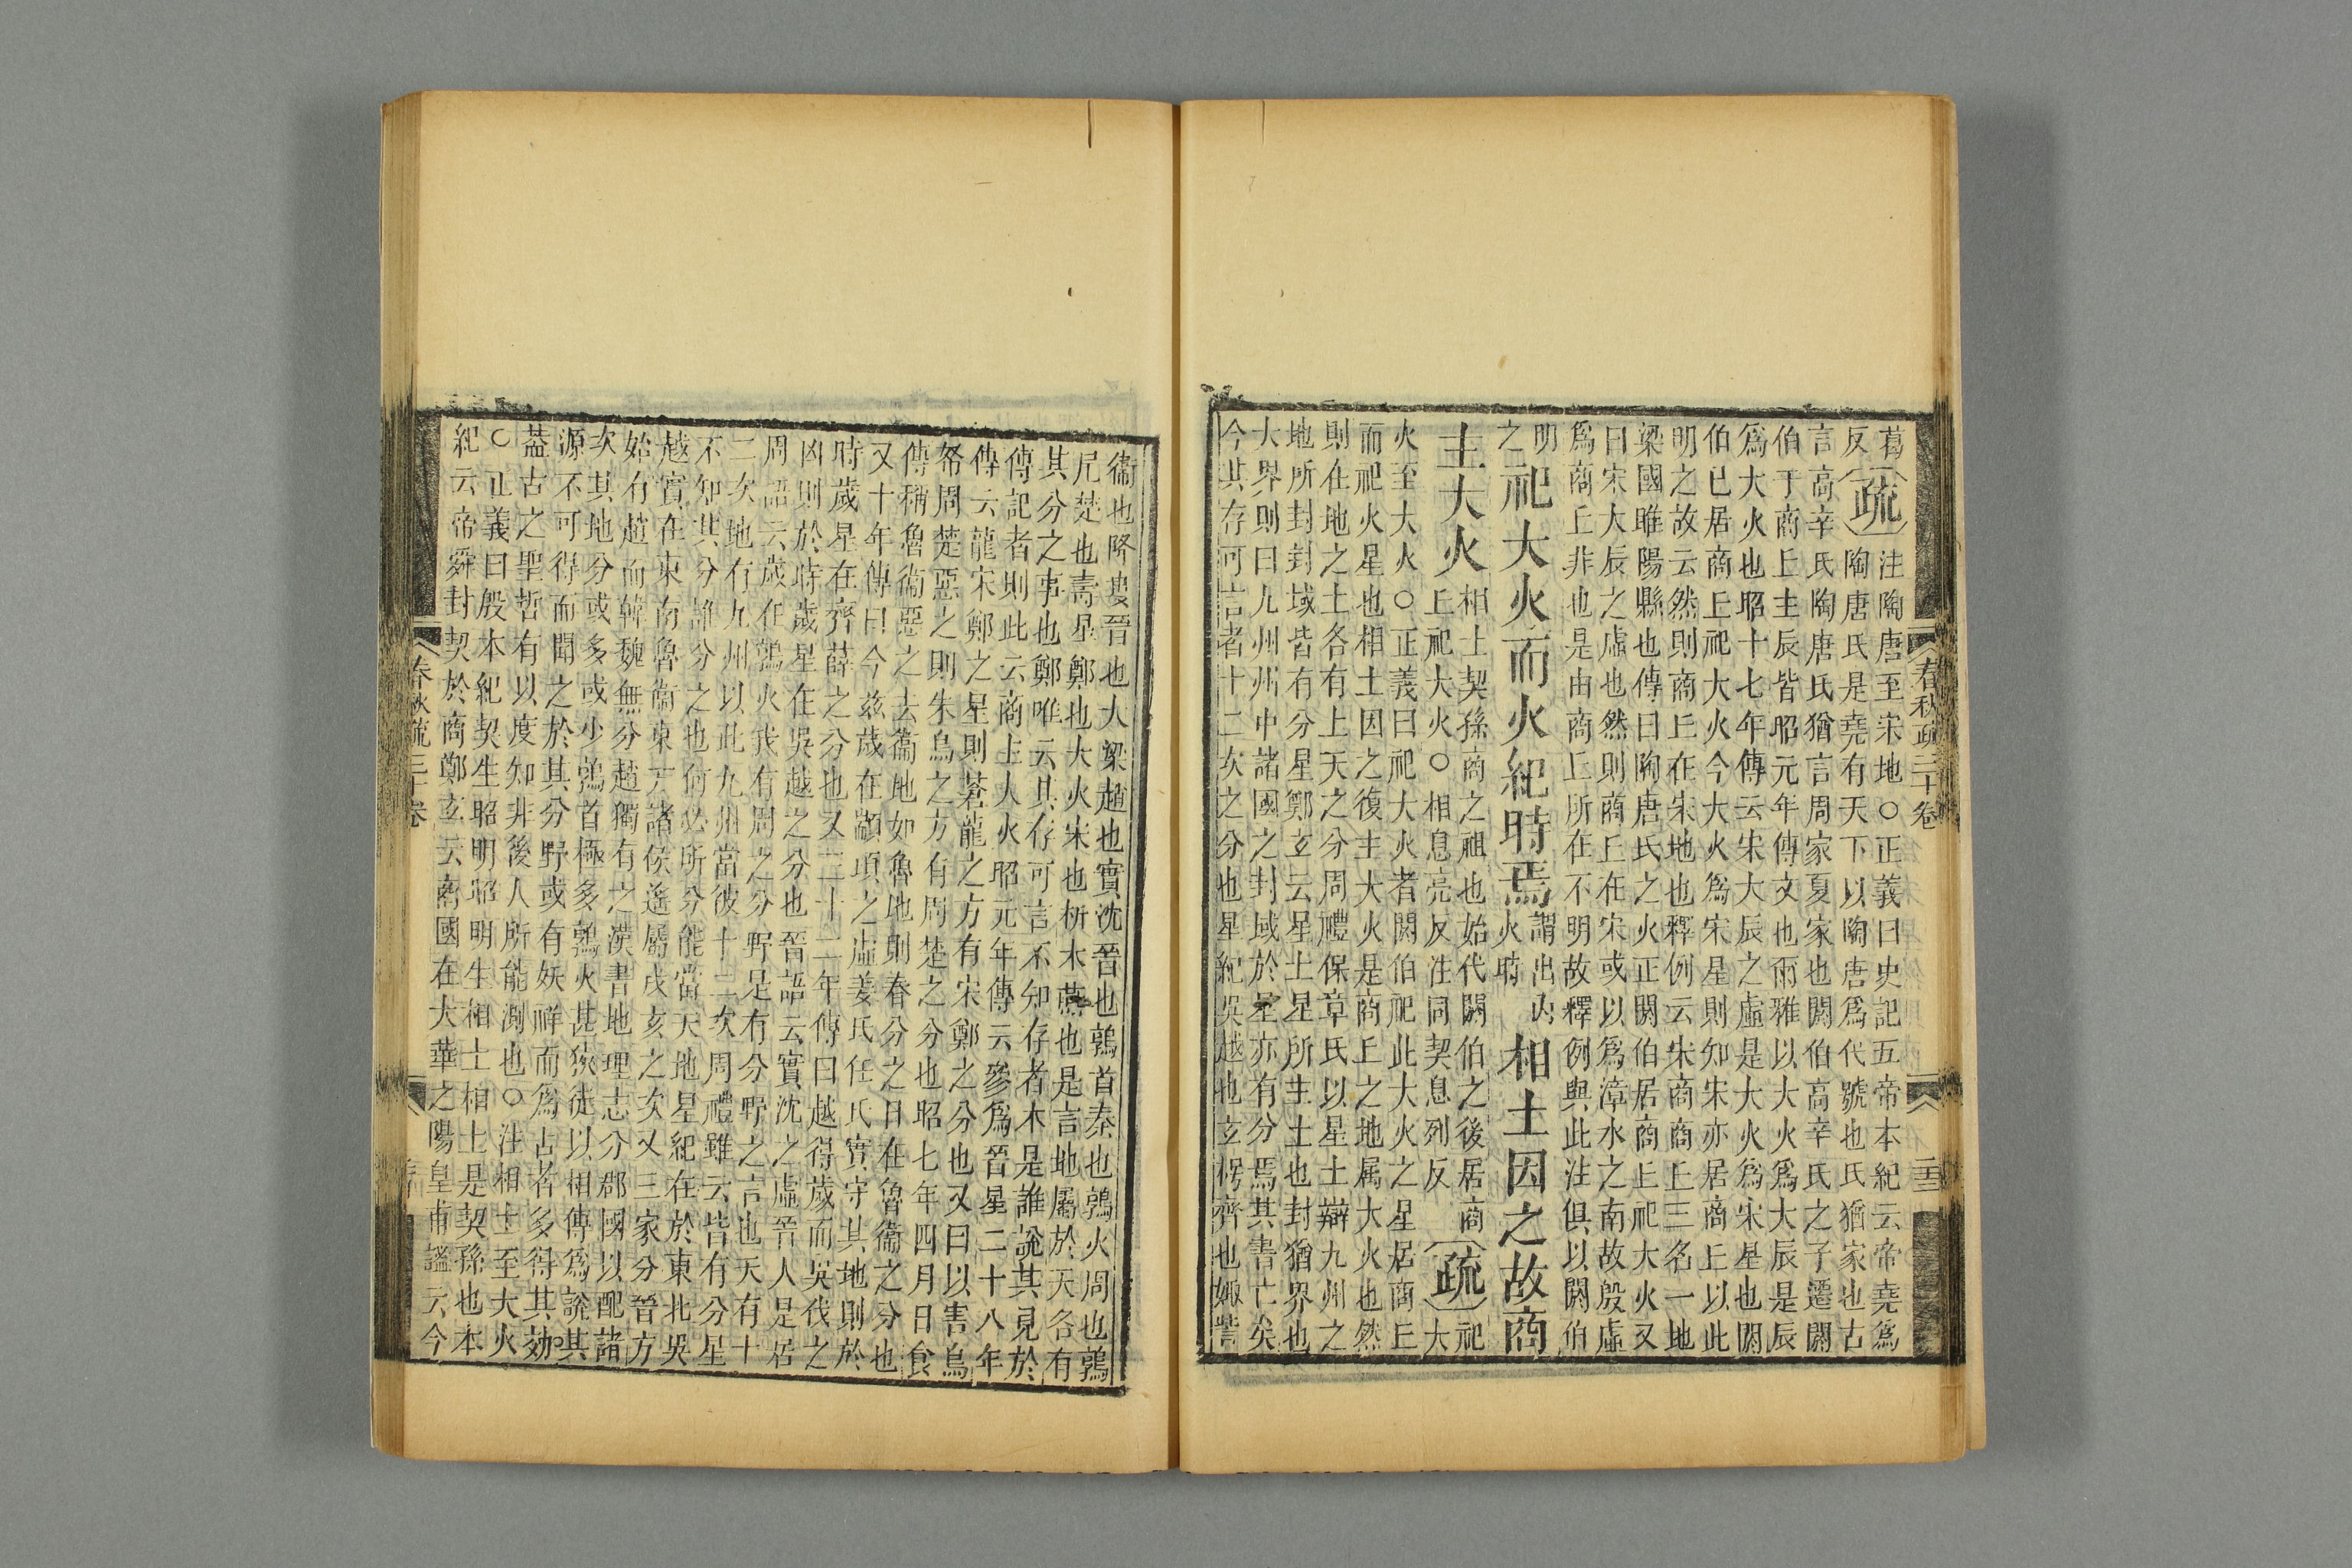 春秋疏三十卷
二十三
葛
反
疏
注陶唐至宋地○正義曰史記五帝本紀云帝堯爲
陶唐氏是堯有天下以陶唐爲代號也氏猶家也古
言高辛氏陶唐氏猶言周家夏家也閼伯高辛氏之子遷閼
伯于商丘主辰皆昭元年傳文也爾雅以大火爲大辰是辰
爲大火也昭十七年傳云宋大辰之虛是大火爲宋星也閼
伯已居商丘祀大火今大火爲宋星則知宋亦居商丘以此
明之故云然則商丘在宋地也釋例云宋商商丘三名一地
梁國睢陽縣也傳曰陶唐氏之火正閼伯居商丘祀大火又
曰宋大辰之虛也然則商丘在宋或以爲漳水之南故殷虛
爲商丘非也是由商丘所在不明故釋例與此注俱以閼伯
明
之
祀大火而火紀時焉
謂出內
火時
相土因之故商
主大火
相土契孫商之祖也始代閼伯之後居商
丘祀大火○相息亮反注同契息列反
疏
祀
大
火至大火○正義曰祀大火者閼伯祀此大火之星居商丘
而祀火星也相土因之復主大火是商丘之地屬大火也然
則在地之土各有上天之分周禮保章氏以星土辯九州之
地所封封域皆有分星鄭玄云星土星所主土也封猶界也
大界則曰九州州中諸國之封域於星亦有分焉其書亡矣
今其存可言者十二次之分也星紀吳越也玄枵齊也娵訾
衞也降婁晉也大梁趙也實沈晉也鶉首秦也鶉火周也鶉
尾楚也壽星鄭也大火宋也析木燕也是言地屬於天各有
其分之事也鄭唯云其存可言不知存者本是誰說其見於
傳記者則此云商主大火昭元年傳云參爲晉星二十八年
傳云龍宋鄭之星則蒼龍之方有宋鄭之分也又曰以害鳥
帑周楚惡之則朱鳥之方有周楚之分也昭七年四月日食
傳稱魯衞惡之去衞地如魯地則春分之日在魯衞之分也
又十年傳曰今茲歲在顓頊之虛姜氏任氏實守其地則於
時歲星在齊薛之分也又三十二年傳曰越得歲而吳伐之
凶則於時歲星在吳越之分也晉語云實沈之虛晉人是居
周語云歲在鶉火我有周之分野是有分野之言也天有十
二次地有九州以此九州當彼十二次周禮雖云皆有分星
不知其分誰分之也何必所分能當天地星紀在於東北吳
越實在東南魯衞東方諸侯遙屬戌亥之次又三家分晉方
始有趙而韓魏無分趙獨有之漢書地理志分郡國以配諸
次其地分或多或少鶉首極多鶉火甚狹徒以相傳爲說其
源不可得而聞之於其分野或有妖祥而爲占者多得其効
蓋古之聖哲有以度知非後人所能測也○注相土至大火
○正義曰殷本紀契生昭明昭明生相土相土是契孫也本
紀云帝舜封契於商鄭玄云商國在大華之陽皇甫謐云今
春秋疏三十卷